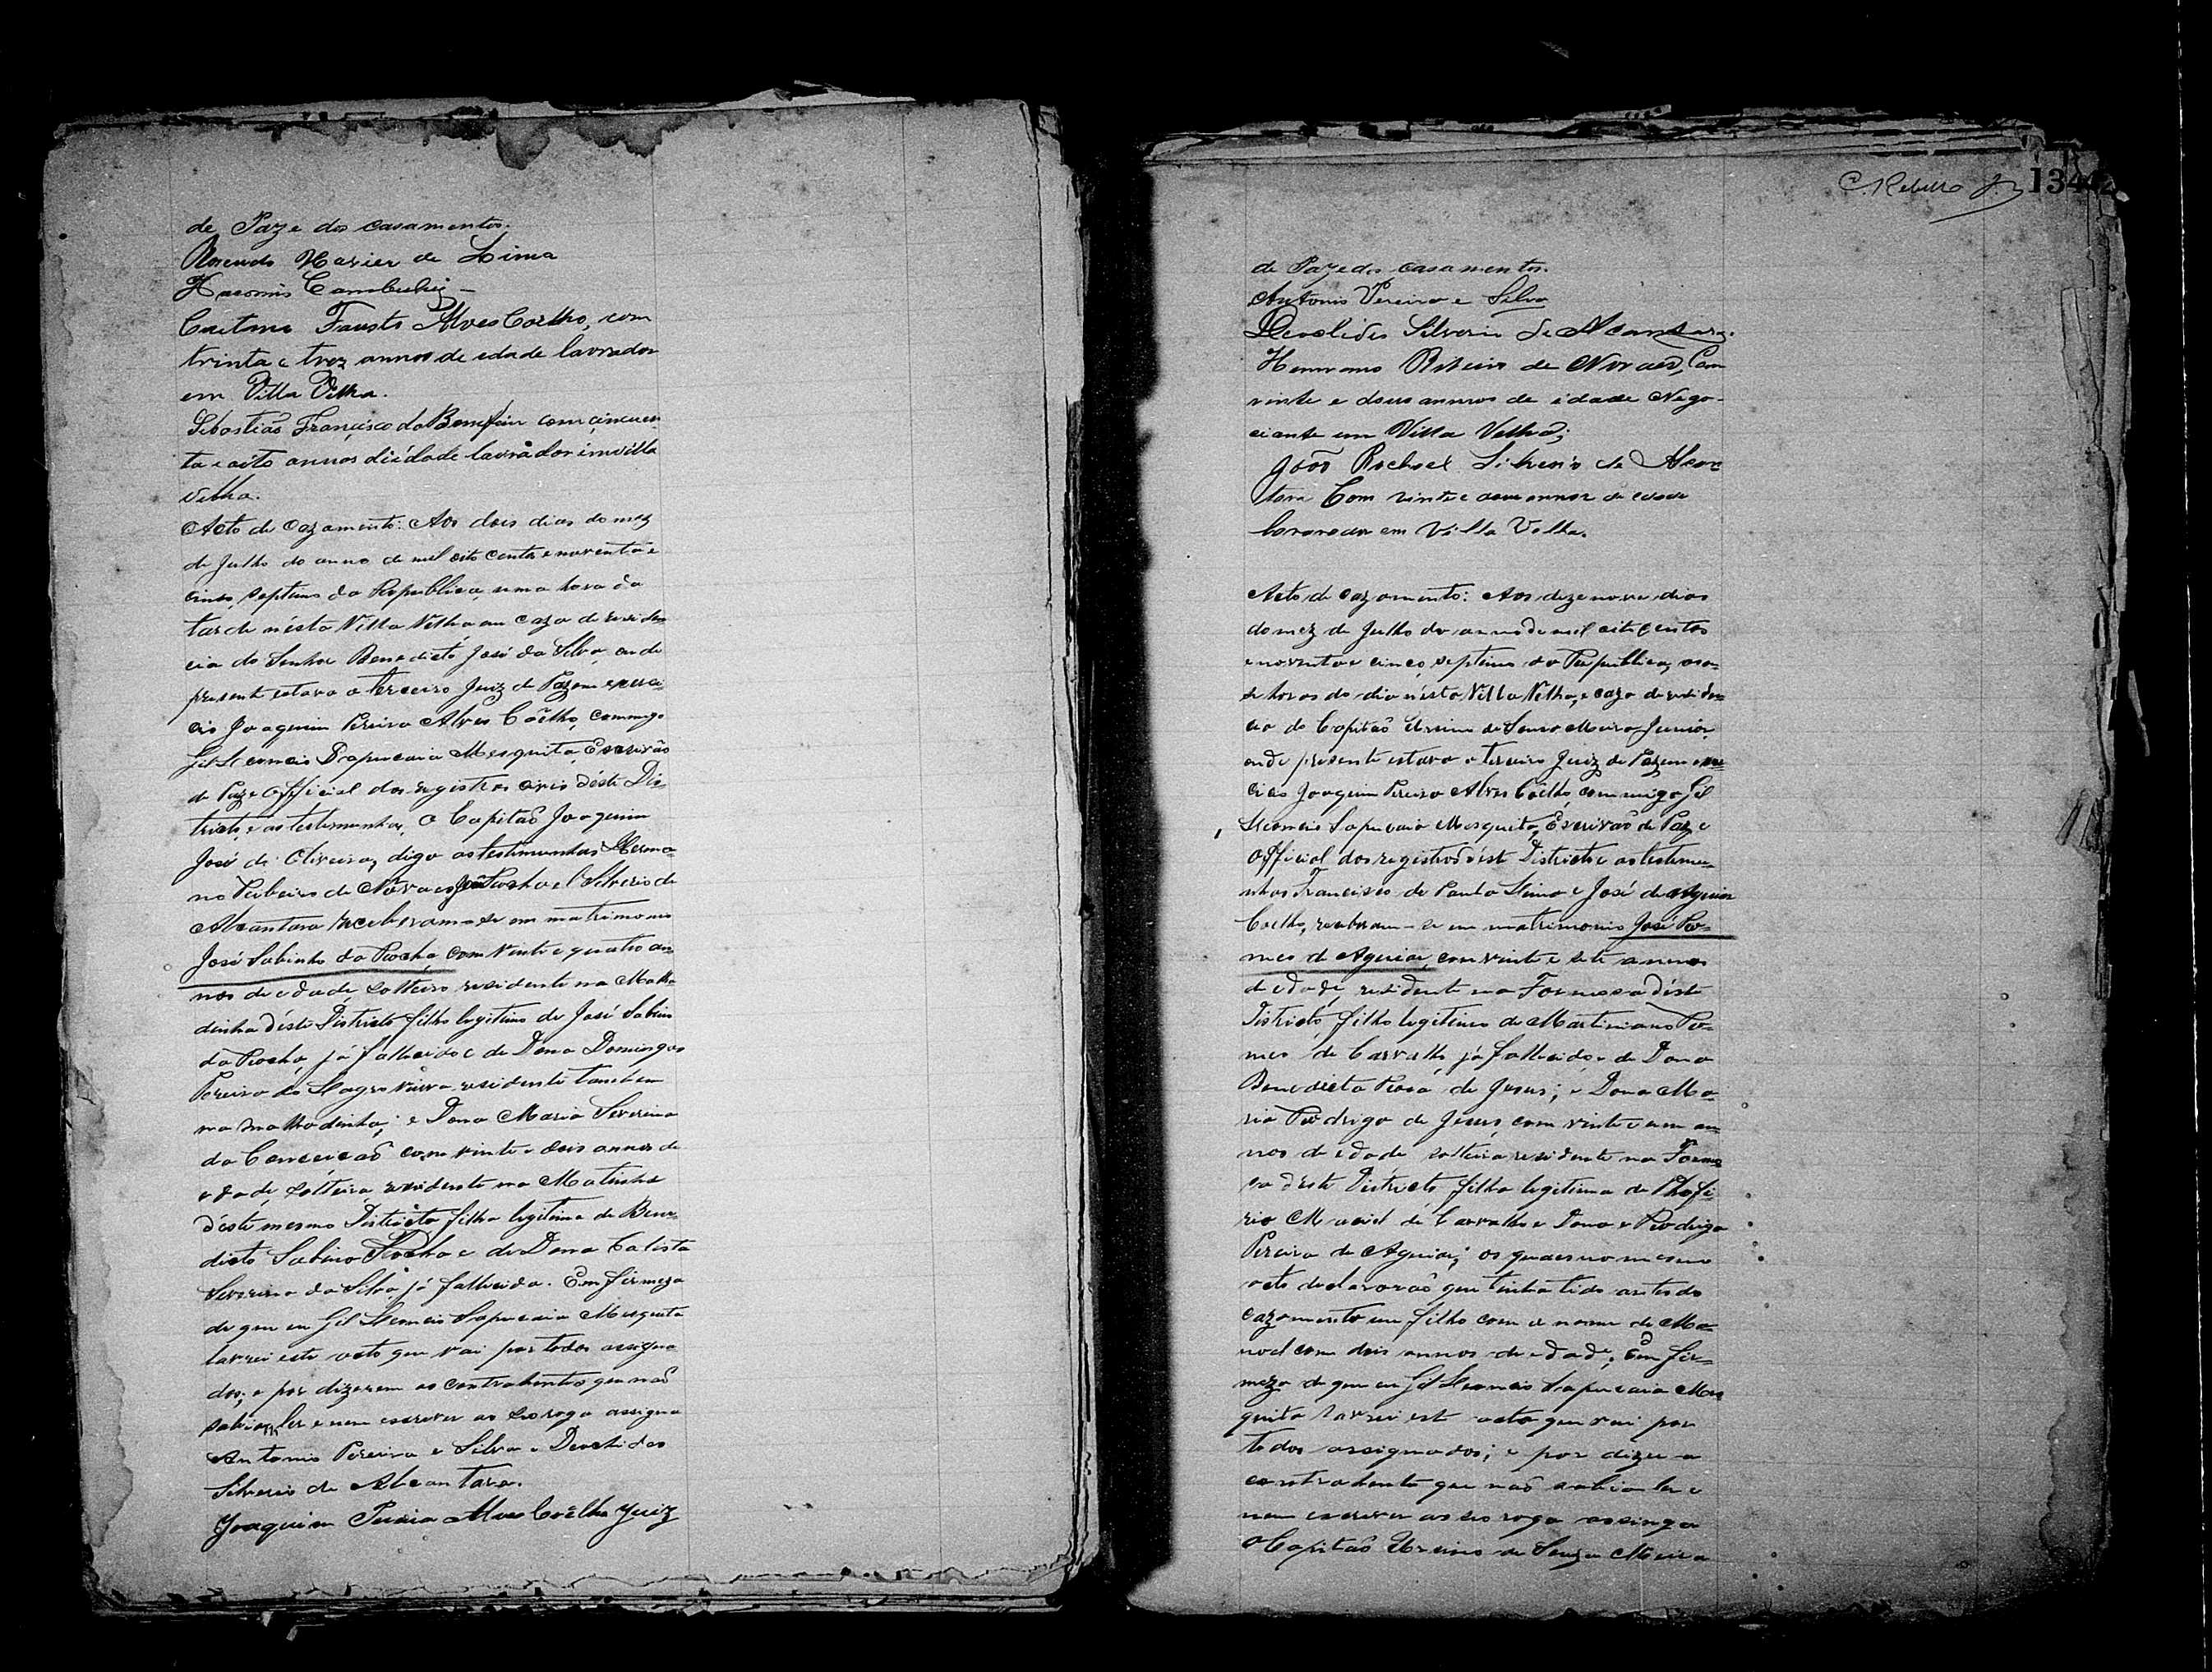 de Paz e dos casamentos.
Rosendo Xavier de Lima
Caetano Fausto Alves Coelho, com
trinta e trez annos de edade lavrador
em Villa Velha.
Sebastião Francisco do Bomfim com cincuen
ta e oito annos di édade lavrador im villa
velha.
Acto de cazamento: Aos dois dias do mez
de Julho do anno de mil oito centos e noventa e
cinco, septimo da Republica, uma hora da
tarde n'ésta Villa Velha em caza de residen
cia do Senhor Benedicto José da Silva, onde
presente estava o terceiro Juiz de Paz em exerci
cio Joaquim Pereira Alves Coêlho, commigo
Gil Sapucaia Mesquita, Escrivão
de Paz e Official dos registros civis déste Dis-
tricto, e as testemunhas, O Capitão Joaquim
José de Oliveira, digo as testemunhas Herma-
no Ribeiro de Nôvaes, João Rachel Silverio de
Alcantara receberam-se em matrimonio
José Sabinho da Rocha, com vinte e quatro an-
nos de edade, solteiro, residente na Malha
dinha déste Districto filho legitimo de José Sabino
da Rocha, já fallecido e de Dona Domingas
Pereira do viuva residente tambem
na malhadinha; e Dona Maria Severina
da Conceicaõ com vinte e dois annos de
edade, solteira, residente na Matinha
déste mesmo Districto filha legitima de Bene-
dicto Sabino Rocha e de Dona Calista
Severina da Silva já fallecida. Em firmeza
de que eu Gil Sapucaia Mesquita
lavrei este acto que vai por todos assigna
dos; e por dizerem os contrahentes que naõ
sabiam ler e nem escrever ao seo rogo assigna
Antonio Pereira e Silva e Deoclides
Silverio de Alcantara.
Joaquim Pereira Alves Coêlho Juiz
C. Rebello Jr.
134
de Paz e dos casamentos.
Antonio Pereira e Silva
Deoclides Silverio de Alcantara.
Hermano Ribeiro de Novaes, Com
vinte e dous annos de edade Nego-
ciante em Villa Velha;
João Rachel Silverio de Alcan
tara Com vinte e annos de edade
lavrador em Villa Velha.
Acto de cazamento: Aos dezenove dias
do mez de Julho do anno de mil oito centos
e noventa e cinco, septimo da Republica, as
horas do dia n'ésta Villa Velha, e caza de residen
cia do Capitaõ Ursino de Souza Meira Junior,
onde presente estava o terceiro Juiz de Paz em exer
cicio Joaquim Pereira Alves Coêlho, commigo Gil
Sapucaia Mesquita, Escrivaõ de Paz e
Official dos registros d'ést Districto e as testemu-
nhas Francisco de Paula Lima e José de Aguiar
Coelho, receberam-se em matrimonio José Ro-
mes de Aguiar, com vinte e sete annos
de edade, residente na Formosa déste
Districto, filho legitimo de Martiniano Ro-
mes de Carvalho já fallecido, e de Dona
Benedicta Rosa de Jesus; e Dona Ma-
ria Rodriga de Jesus, com vinte e um an-
nos de edade solteira residente na Formo
sa déste Districto filha legitima de
rio Maciel de Carvalho e Dona Rodriga
Pereira de Aguiar; os quaes no mesmo
acto declararaõ que tinha tido antes do
cazamento um filho com o nome de Ma-
noel com dois annos de edade. Em fir-
meza de que eu Gil Sapucaia Mes
quita lavrei est acto que vai por
todos assignados; e por dizer a
contrahente que naõ sabia ler e
nem escrever ao seo rogo assigna
o Capitaõ Ursino de Souza Meira